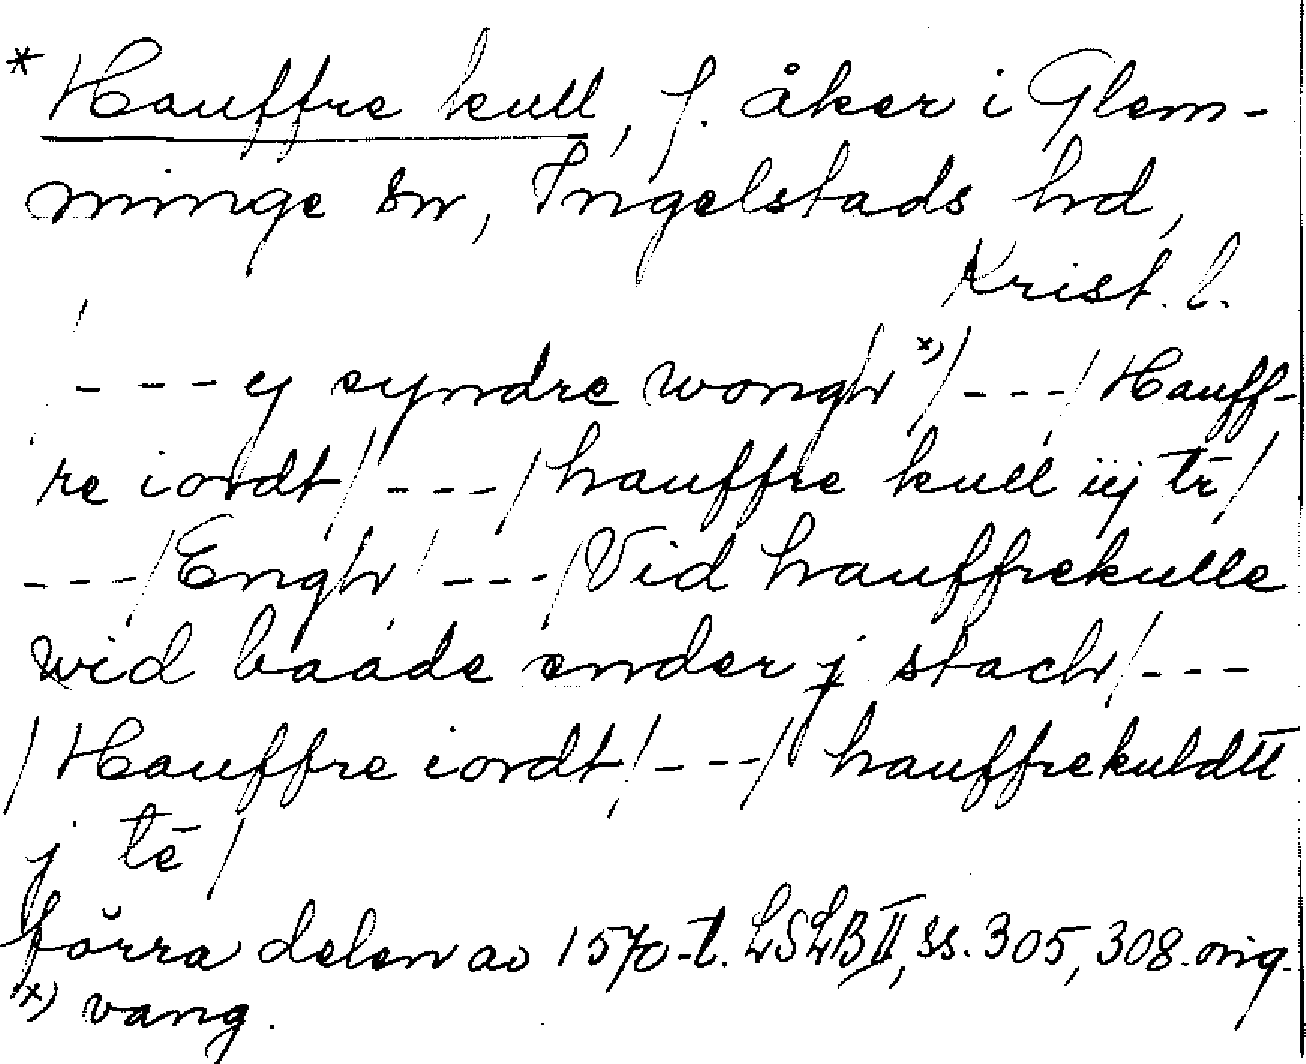 * Hauffre kull, f. åker i Glem-
minge sn, Ingelstads hd,
Krist. l.
--- ej syndre wongh x) / --- / Hauff-
re iordt / --- / hauffre kull iij tr̄ /
--- / Engh / --- / Vid hauffrekulle
wid baade ender j stach / ---
/ Hauffre iordt / --- / hauffrekuldtt
j tē /
förra delen av 1570-t. LSLB II, ss. 305, 308. orig.
x) vang.